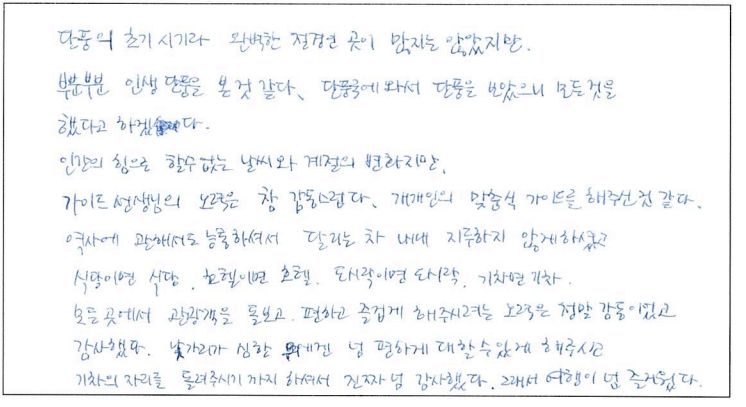 단풍의 초기 시기라 완벽한 절경인 곳이 많지는 않았지만.
부분부분 인생 단풍을 본 것 같다. 단풍국에 와서 단풍을 보았으니 모든 것을
했다고 하겠다.
인간의 힘으로 할 수 없는 날씨와 계절의 변화지만,
가이드 선생님의 노력은 참 감동스럽다. 개개인의 맞춤식 가이드를 해주신 것 같다.
역사에 관해서도 능통하셔서 달리는 차 내내 지루하지 않게 하셨고
식당이면 식당. 호텔이면 호텔. 도시락이면 도시락. 기차면 기차.
모든 곳에서 관광객을 돌보고. 편하고 즐겁게 해주시려는 노력은 정말 감동이었고
감사했다. 낯가리가 심한 넘 편하게 대할 수 있게 해주시고
기차의 자리를 돌려주시기까지 하셔서 진짜 넘 감사했다. 그래서 여행이 넘 즐거웠다.